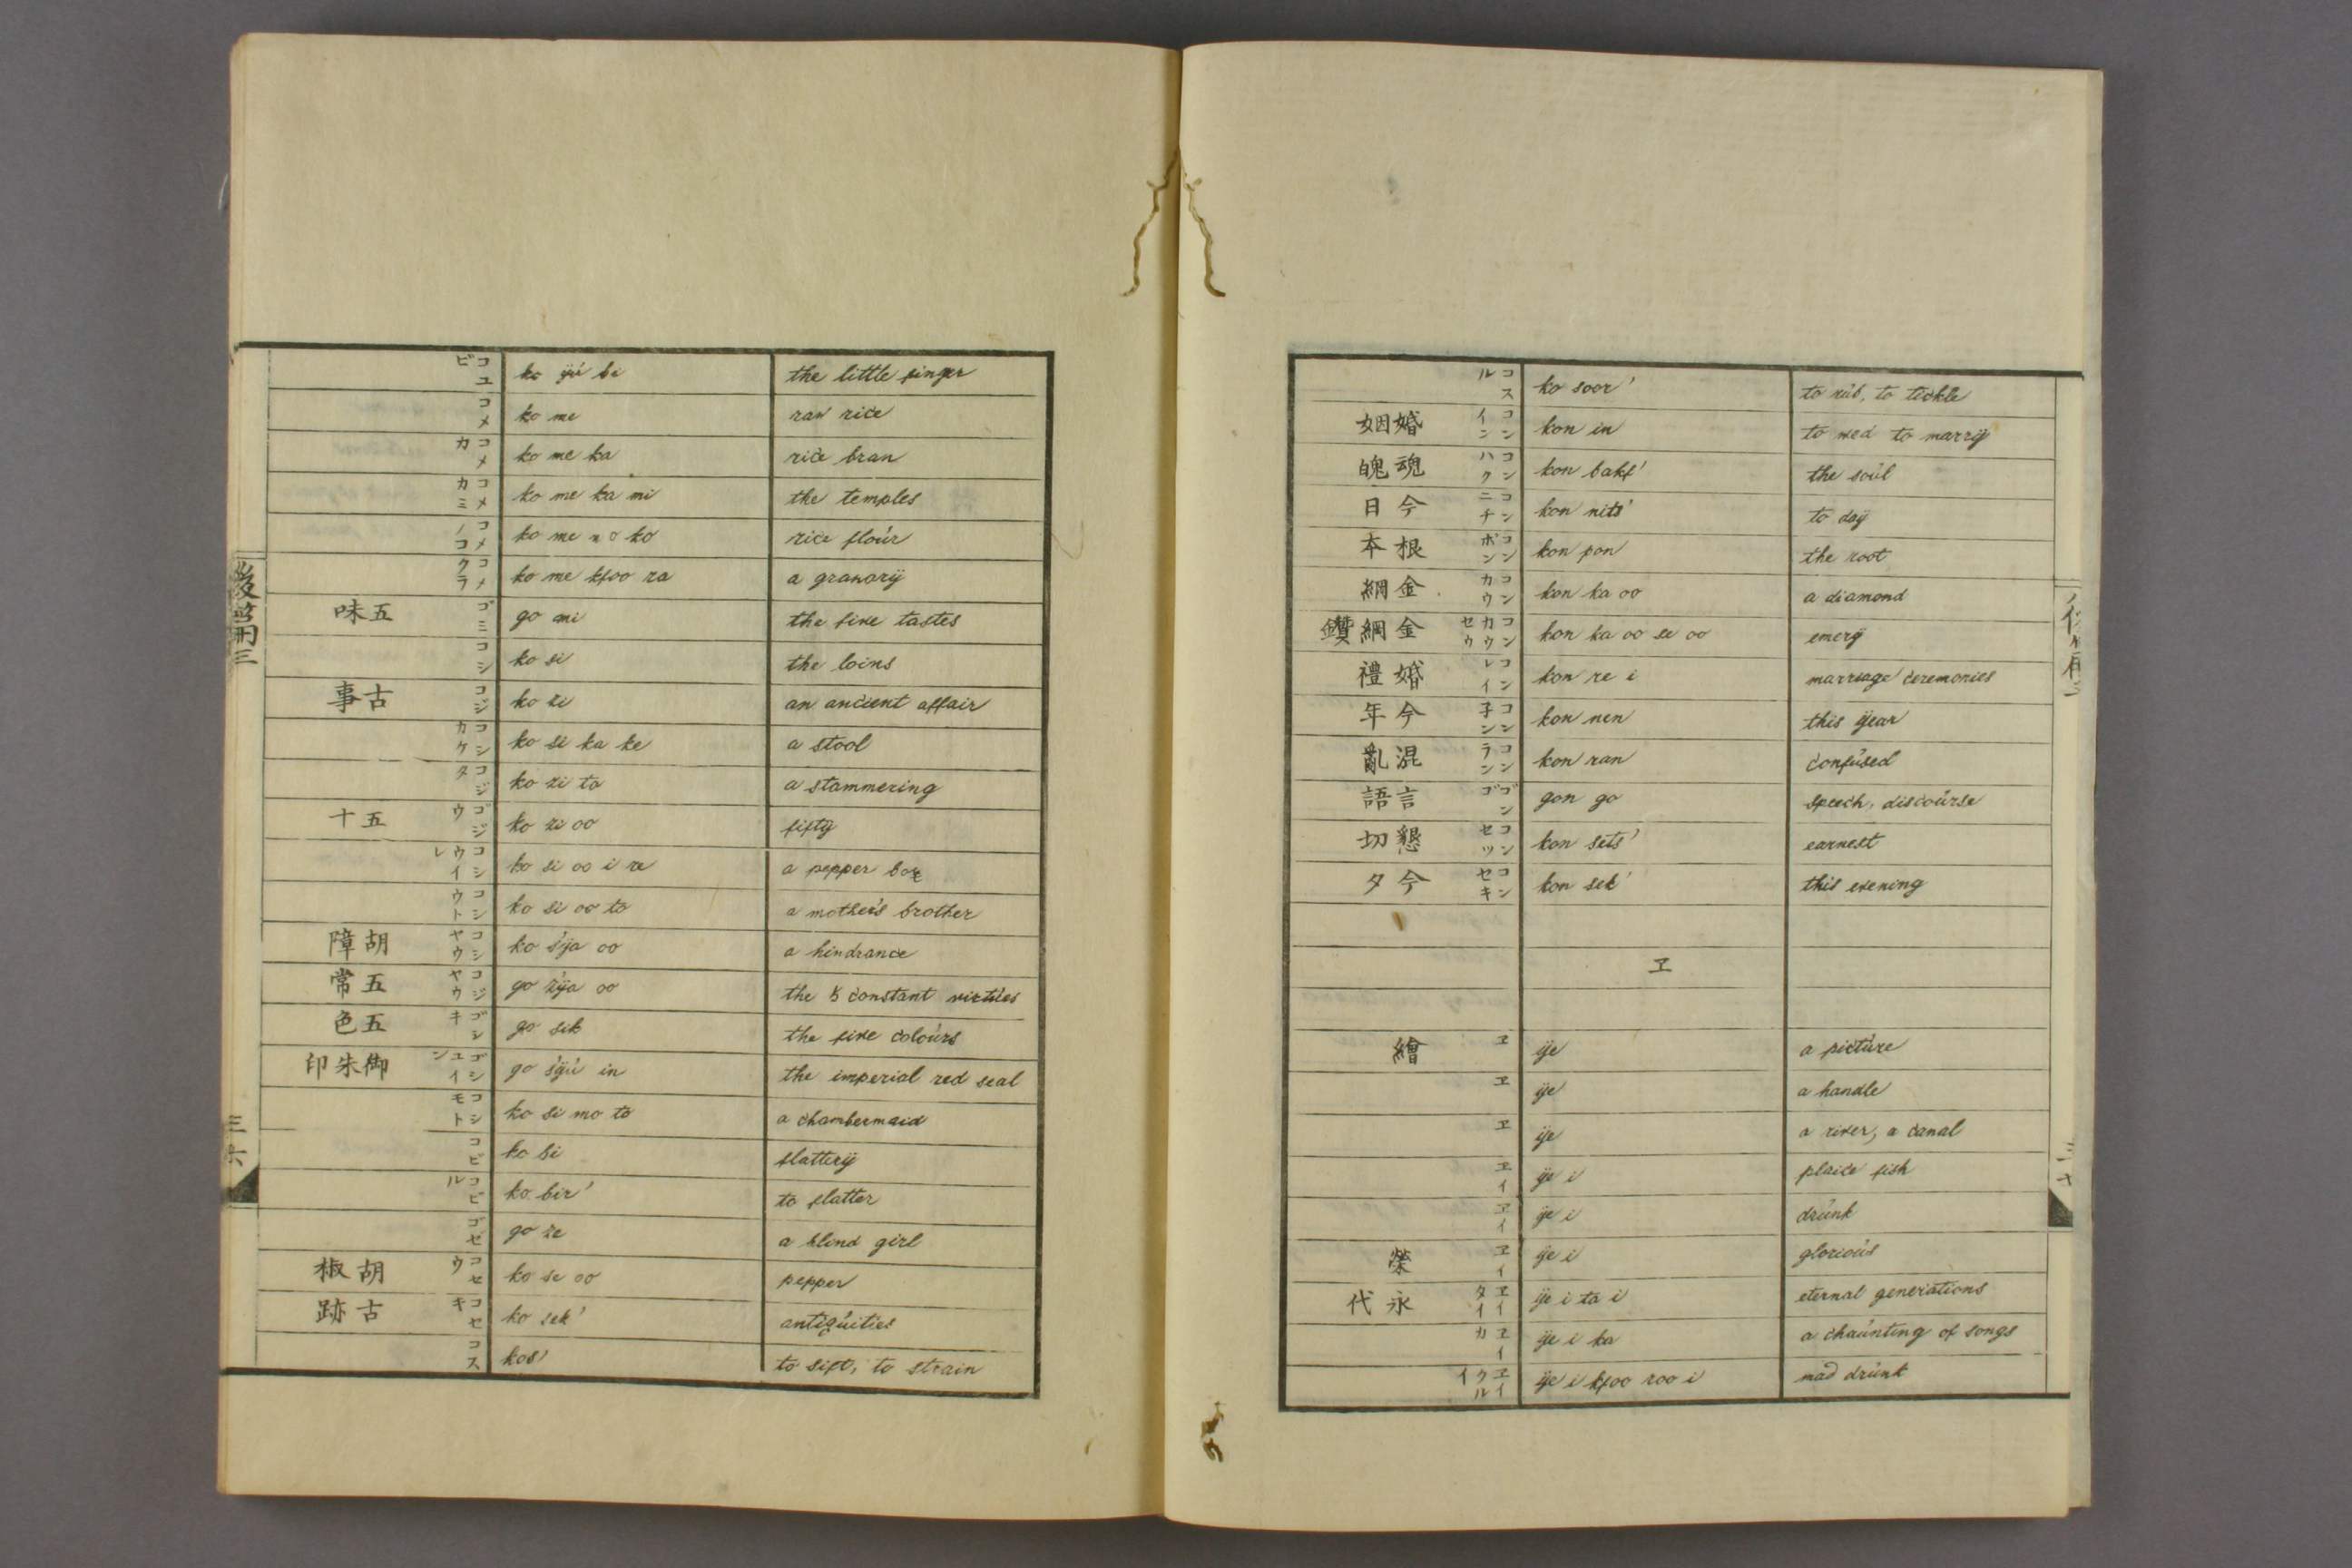 コユビ ko ÿú bi the little finger
コメ ko me raw rice
コメカ ko me ka rice bran
コメカミ ko me ka mi the temples
コメノコ ko me no ko rice floúr
コメクラ ko me kfoo ra a granarÿ
味五 ゴミ go mi the five tastes
コシ ko si the loins
事古 コジ ko zi an ancient affair
コシカケ ko si ka ke a stool
コジタ ko zi ta a stammering
十五 ゴジウ ko zi oo fiftÿ
コシウイレ ko si oo i re a pepper box
コシウト ko si oo to a mother's brother
障胡 コシヤウ ko s'ÿa oo a hindrance
常五 コジヤウ go z'ÿa oo the 5 constant virtúes
色五 ゴシキ go sik the five coloúrs
印朱御 ゴシユイン go s'ÿú in the imperial red seal
コシモト ko si mo to a chambermaid
コビ ko bi flatterÿ
コビル ko bir' to flatter
ゴゼ go ze a blind girl
椒胡 コセウ ko se oo pepper
跡古 コセキ ko sek' antiqúities
コス kos' to sift, to strain
後篇三
三六
コスル ko soor' to rúb, to tickle
姻婚 コンイン kon in to wed to marrÿ
魄魂 コンハク kon bakf' the soúl
日今 コンニチ kon nits' to daÿ
本根 コンポン kon pon the root
綱金 コンカウ kon ka oo a diamond
鑽綱金 コンカウセウ kon ka oo se oo emerÿ
禮婚 コンレイ kon re i marriage ceremonies
年今 コン子ン kon nen this ÿear
亂混 コンラン kon ran confúsed
語言 ゴンゴ gon go speech, discoúrse
切懇 コンセツ kon sets' earnest
夕今 コンセキ kon sek' this evening
ヱ
繪 ヱ ÿe a pictúre
ヱ ÿe a handle
ヱ ÿe a river, a canal
ヱイ ÿe i plaice fish
ヱイ ÿe i drúnk
榮 ヱイ ÿe i glorioús
代永 ヱイタイ ÿe i ta i eternal generations
ヱイカ ÿe i ka a chaúnting of songs
ヱイクルイ ÿe i kfoo roo i mad drúnk